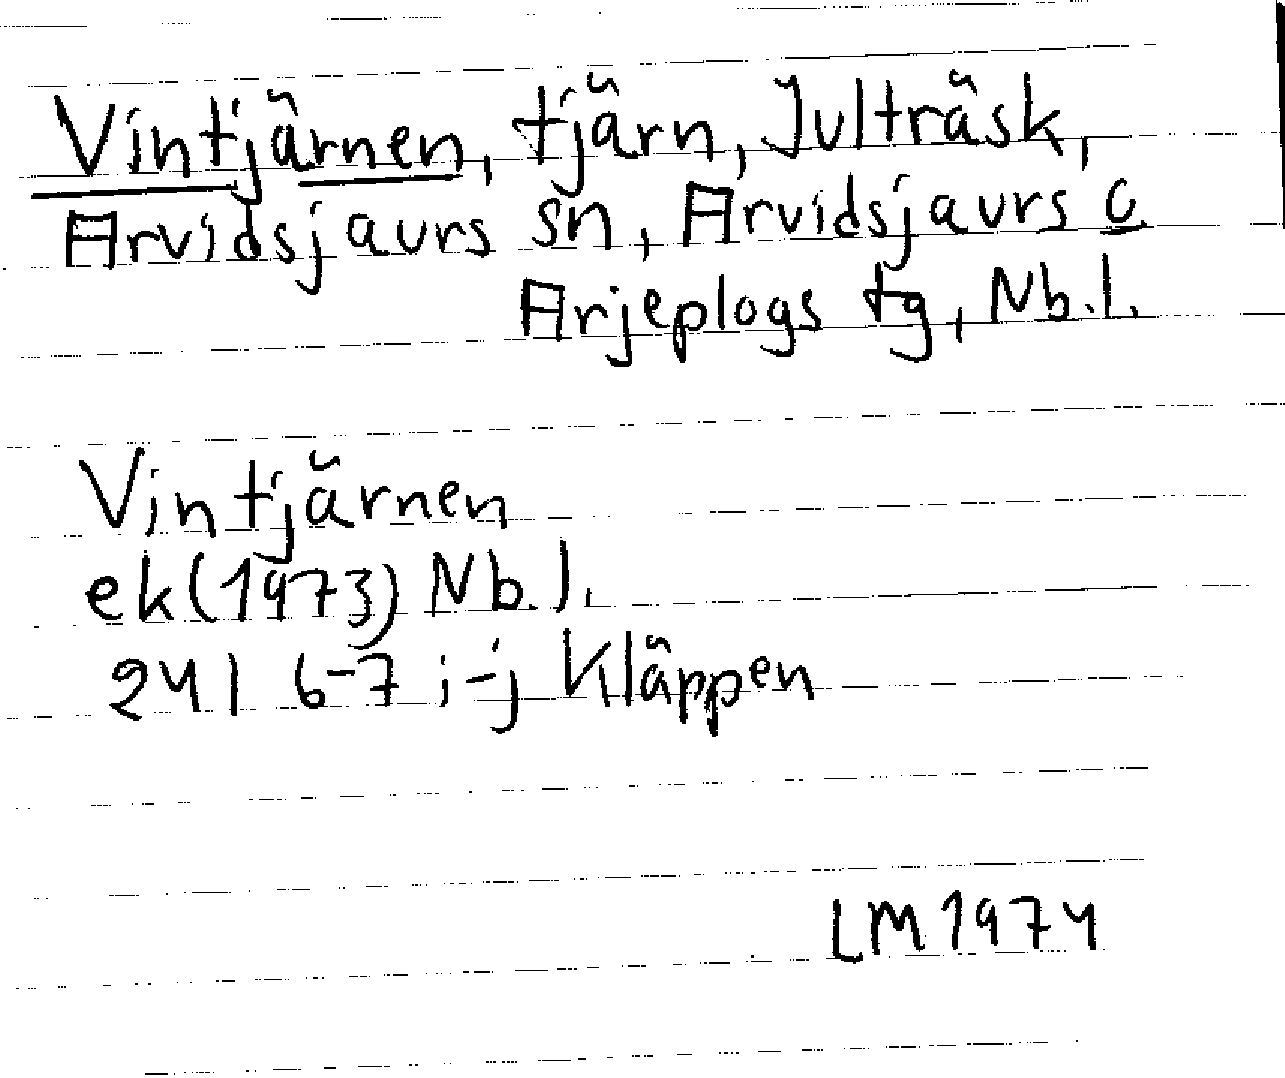 Vintjärnen, tjärn, Julträsk,
Arvidsjaurs sn, Arvidsjaurs o
Arjeplogs tg, Nb.l.
Vintjärnen
ek(1973) Nb.l.
24I 6-7 i-j Kläppen
LM 1974